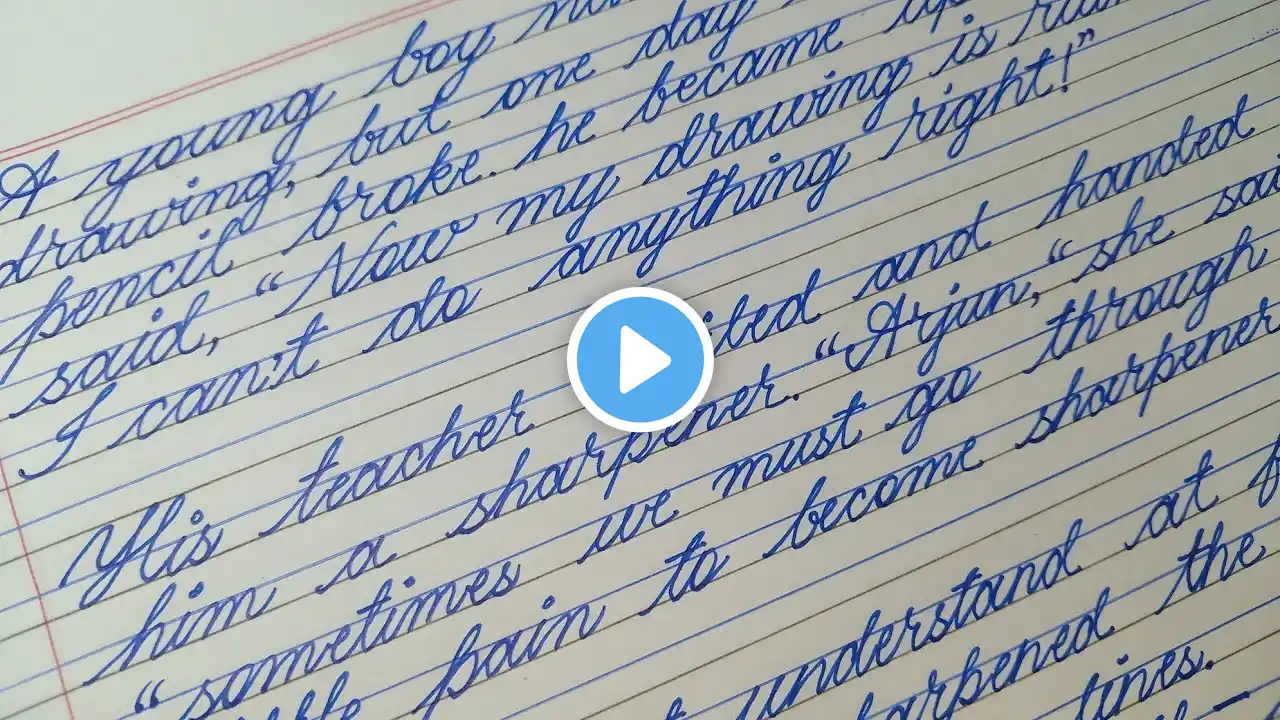 A young boy
drawing, but one day
pencil broke. he became
said, "Now my drawing is
I can't do anything right!"
His teacher and handed
him a sharpener. "Arjun, "she
"sometimes we must go through
pain to become sharpener
understand at
the
tines.